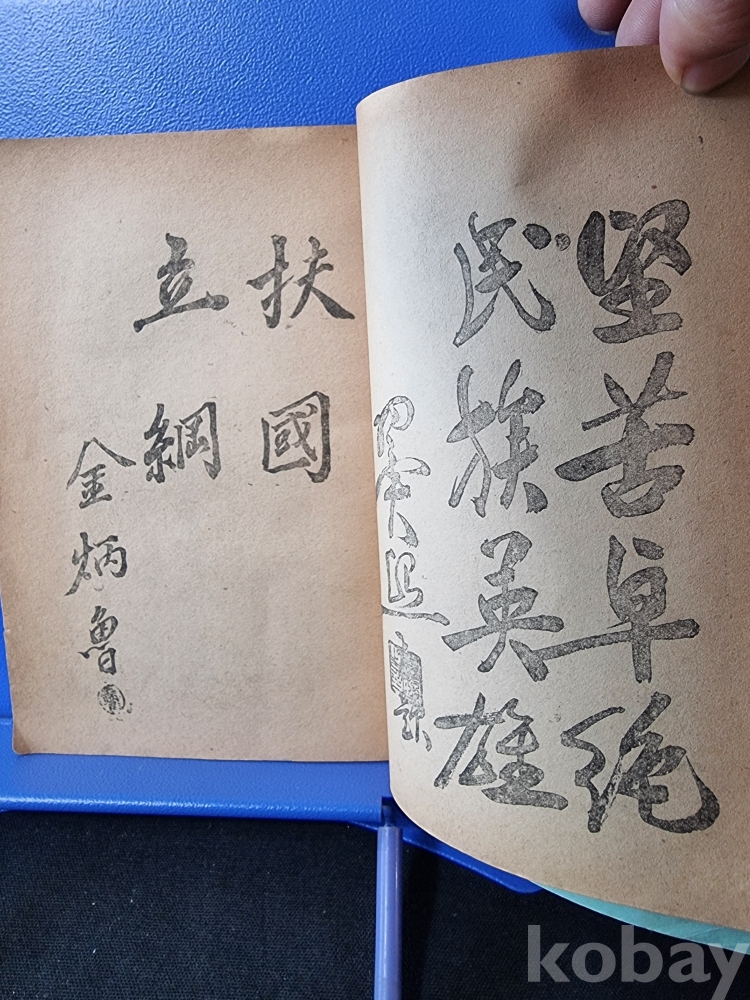 堅苦卓絶
民族英雄
扶國
立綱
金炳魯
kobay